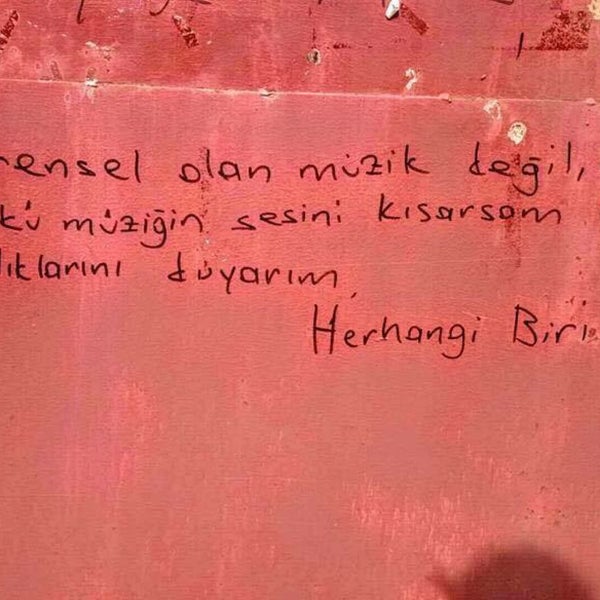 rensel olan müzik değil,
kü müziğin sesini kısarsam
lıklarını duyarım
Herhangi Biri